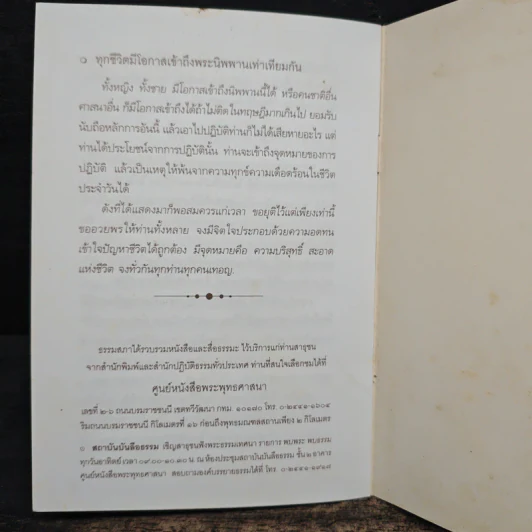 ๑ ทุกชีวิตมีโอกาสเข้าถึงพระนิพพานเท่าเทียมกัน
ทั้งหญิง ทั้งชาย มีโอกาสเข้าถึงนิพพานนี้ได้ หรือคนชาติอื่น
ศาสนาอื่น ก็มีโอกาสเข้าถึงได้ถ้าไม่ติดในทฤษฎีมากเกินไป ยอมรับ
นับถือหลักการอันนี้ แล้วเอาไปปฏิบัติท่านก็ไม่ได้เสียหายอะไร แต่
ท่านได้ประโยชน์จากการปฏิบัตินั้น ท่านจะเข้าถึงจุดหมายของการ
ปฏิบัติ แล้วเป็นเหตุให้พ้นจากความทุกข์ความเดือดร้อนในชีวิต
ประจำวันได้
ดังที่ได้แสดงมาก็พอสมควรแก่เวลา ขอยุติไว้แต่เพียงเท่านี้
ขออวยพรให้ท่านทั้งหลาย จงมีจิตใจประกอบด้วยความอดทน
เข้าใจปัญหาชีวิตได้ถูกต้อง มีจุดหมายคือ ความบริสุทธิ์ สะอาด
แห่งชีวิต จงทั่วกันทุกท่านทุกคนเทอญ.
ธรรมสภาได้รวบรวมหนังสือและสื่อธรรมะ ไว้บริการแก่ท่านสาธุชน
จากสำนักพิมพ์และสำนักปฏิบัติธรรมทั่วประเทศ ท่านที่สนใจเลือกชมได้ที่
ศูนย์หนังสือพระพุทธศาสนา
เลขที่ ๒-๖ ถนนบรมราชชนนี เขตทวีวัฒนา กทม. ๑๐๑๗๐ โทร. ๐-๒๔๔๑-๑๖๐๔
ริมถนนบรมราชชนนี กิโลเมตรที่ ๑๖ ก่อนถึงพุทธมณฑลสถานเพียง ๒ กิโลเมตร
๐ สถาบันบันลือธรรม เชิญสาธุชนฟังพระธรรมเทศนา รายการ พบพระ พบธรรม
ทุกวันอาทิตย์ เวลา ๐๙.๐๐-๑๐.๓๐ น. ณ ห้องประชุมสถาบันบันลือธรรม ชั้น ๒ อาคาร
ศูนย์หนังสือพระพุทธศาสนา สอบถามองค์บรรยายธรรมได้ที่ โทร. ๐-๒๔๔๑-๑๙๑๗